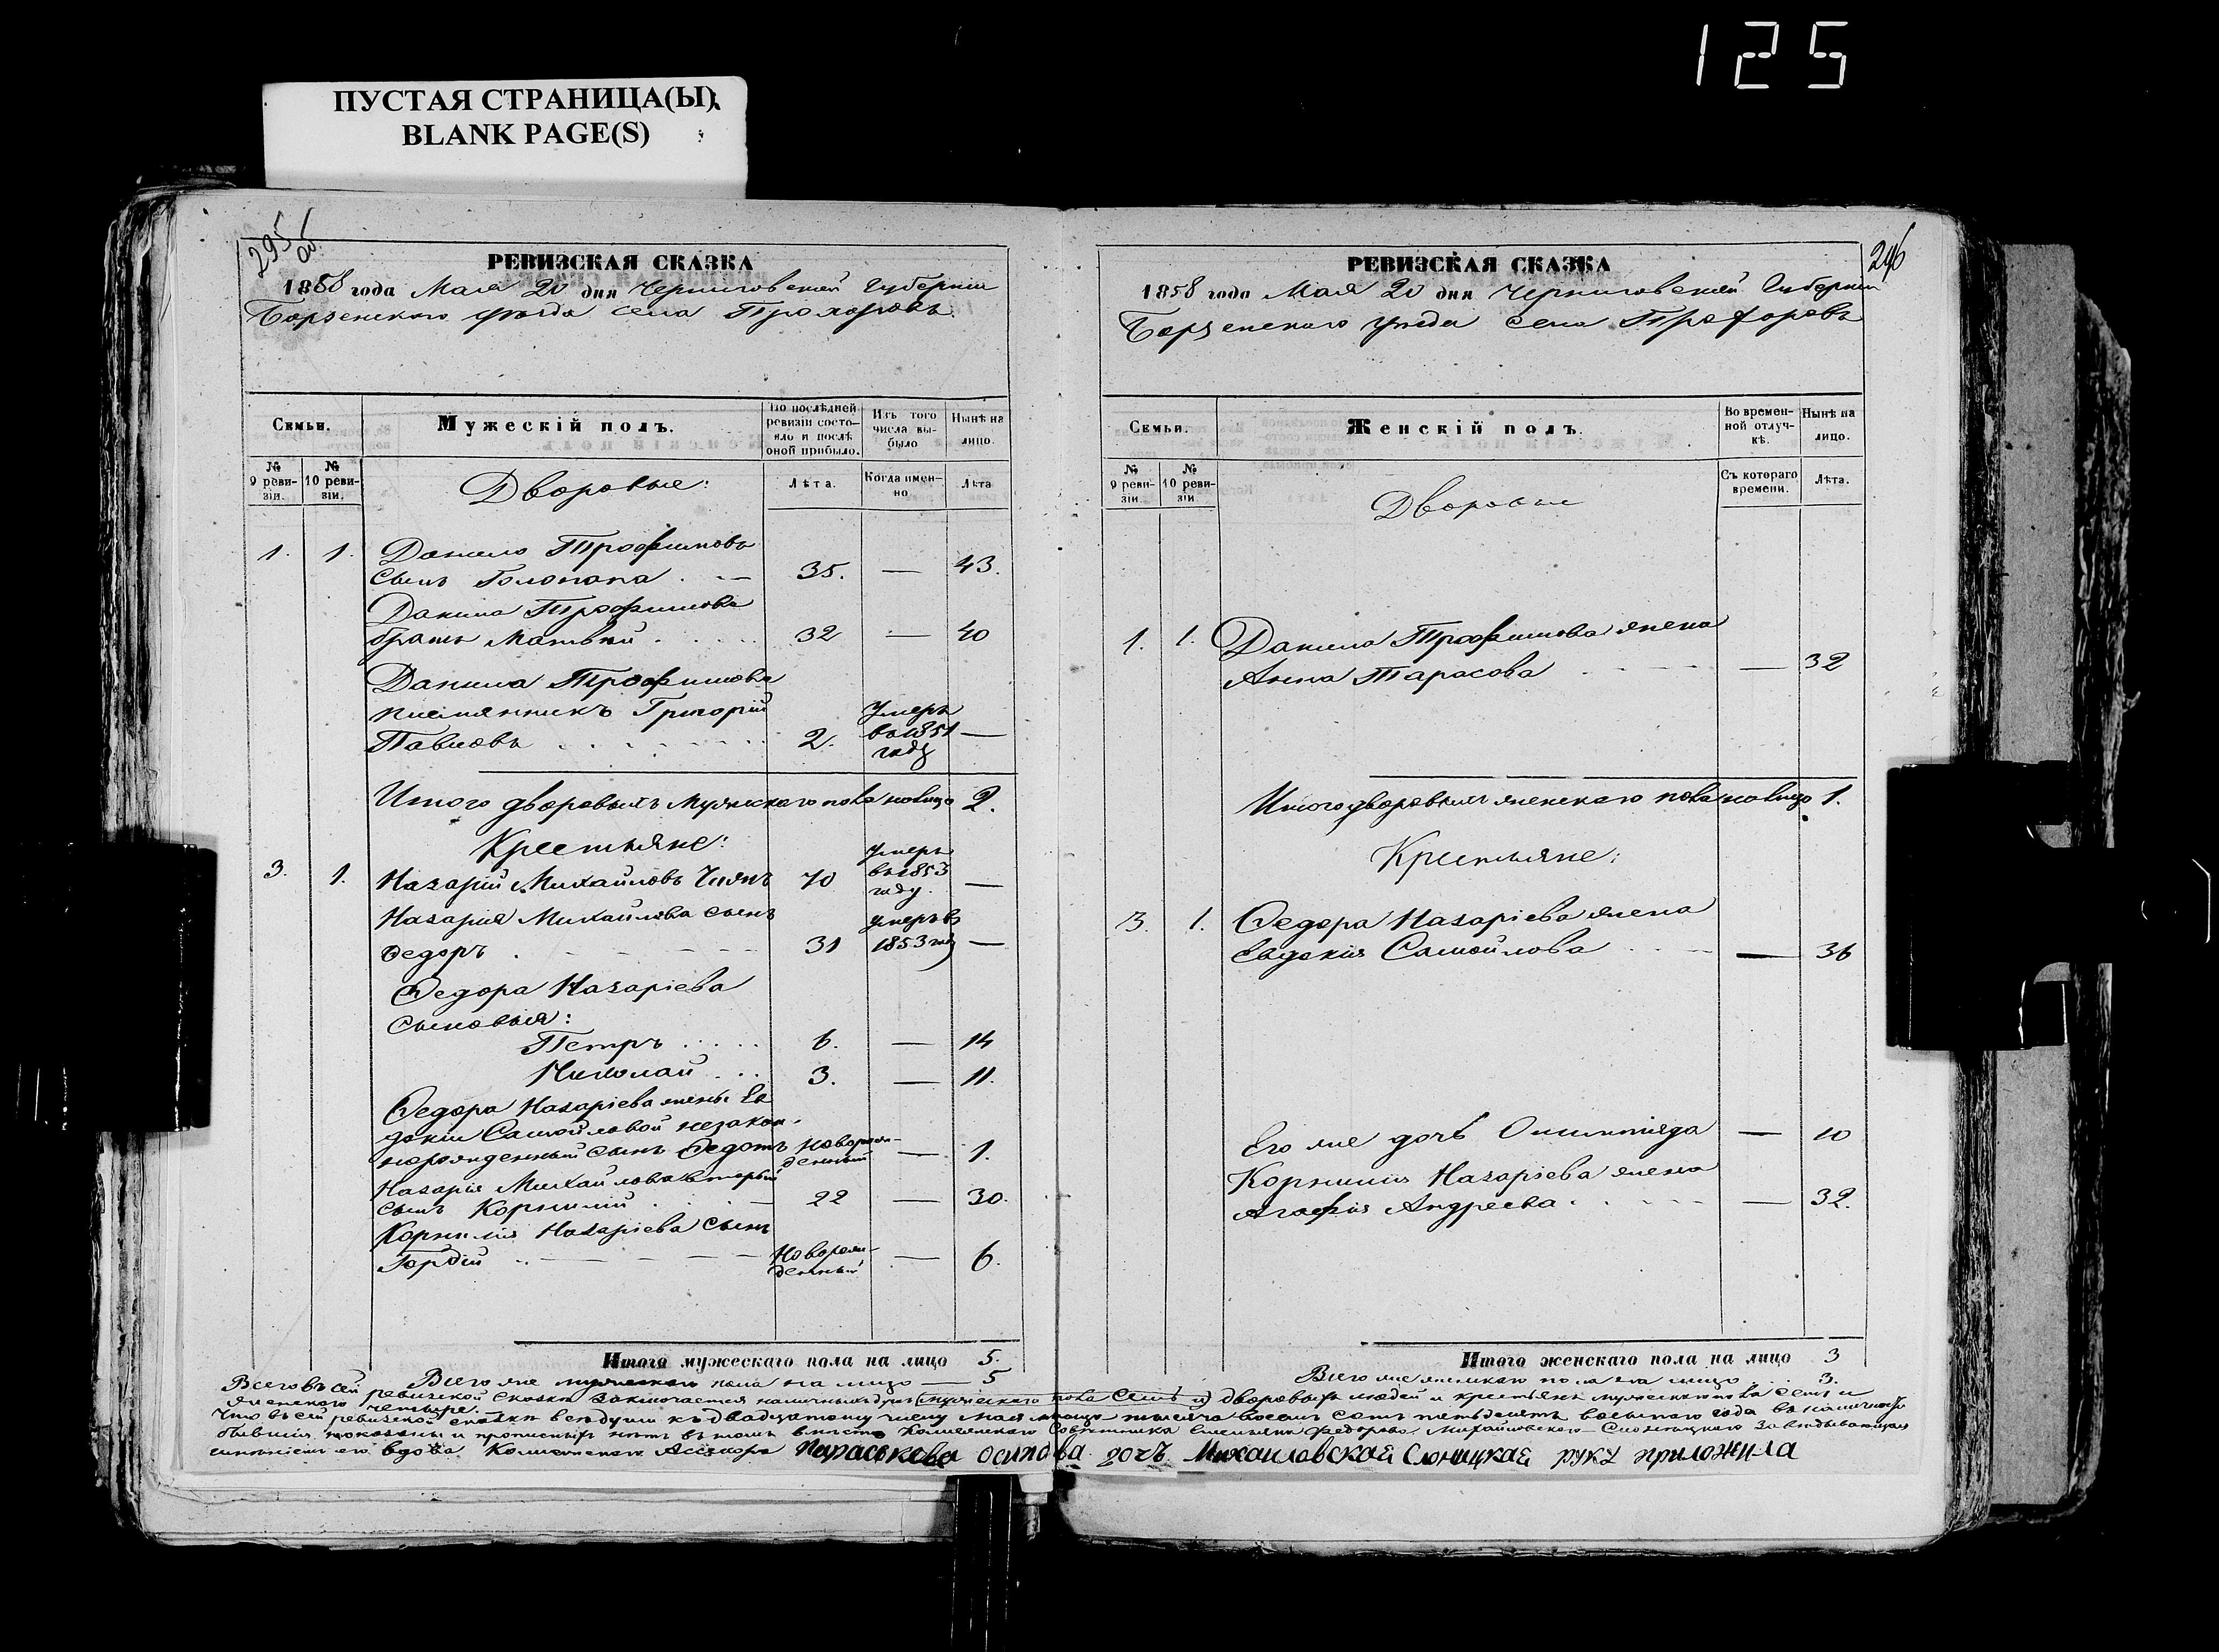 125
ПУСТАЯ СТРАНИЦА(Ы)
BLANK PAGE(S)
295 об.
РЕВИЗСКАЯ СКАЗКА
1858 года Мая 20 дня Черниговской Губернии
Борзенского уѣзда села Прохоровъ
Семьи.
Мужескій полъ.
По послѣдней ревизіи состояло и послѣ оной прибыло.
Изъ того числа выбыло
Нынѣ на лицо.
№ 9 ревизіи.
№ 10 ревизіи.
Дворовые:
Лѣта.
Когда именно
Лѣта
1. 1. Данило Трофимовъ
сынъ Голопапа . — 35. — 43.
Данила Трофимова
братъ Матвѣй . . . . 32 — 40
Данила Трофимова
племянникъ Григорій
Павловъ . . . . . . . 2. Умеръ въ 1851 году —
Итого дворовыхъ мужескаго пола на лицо 2.
Крестьяне:
3. 1. Назарій Михайловъ 70 Умеръ въ 1853 году. —
Назарія Михайлова сынъ
Федоръ . — — — — 31 умеръ въ 1853 году —
Федора Назаріева
Сыновья:
Петръ . . . . . 6. — 14
Николай . . . 3. — 11.
Федора Назаріева жены Ев
докіи Самойловой незакон-
норожденный сынъ Федотъ новорожденный — 1.
Назарія Михайлова вторый
сынъ Корнилій . . — 22 — 30.
Корнилія Назаріева сынъ
Гордій . . — — — — Новорожденный — 6.
Итого мужескаго пола на лицо 5.
Всего же мужескаго пола на лицо — 5
246
РЕВИЗСКАЯ СКАЗКА
1858 года Мая 20 дня Черниговской Губерніи
Борзенского уѣзда села Прохоровъ
Семьи.
Женскій полъ.
Во временной отлучкѣ.
Нынѣ на лицо.
№ 9 ревизіи.
№ 10 ревизіи
Дворовые
Съ котораго времени.
Лѣта.
1. 1. Данила Трофимова жена
Анна Тарасова . — — — — 32
Итого дворовыхъ женскаго пола на лицо 1.
Крестьяне:
3. 1. Федора Назаріева жена
Евдокия Самойлова . . — — — 36
Его же дочь Олимпіяда — 10
Корнилия Назаріева жена
Агафия Андреева . . — — — — 32.
Итого женскаго пола на лицо 3
Всего же женскаго пола на лицо . . . 3.
Всего въ сей ревизской сказки заключается наличныхъ душъ мужескаго пола семь и дворовыхъ людей и крестьянъ мужескаго пола семь и
женскаго четыре.
Что въ сей ревизской сказки всѣ души къ двадцатому числу мая мѣсяца тысяча восемь сотъ пятьдесятъ восьмого года въ наличности
бывшія показаны и прописныхъ нѣтъ въ томъ вмѣсто Коллежского Совѣтника Федорова Михайловского-
имѣніемъ его вдова Коллежского Ассесора Параськева осипова дочъ Михаиловская Слоницкая руку приложила